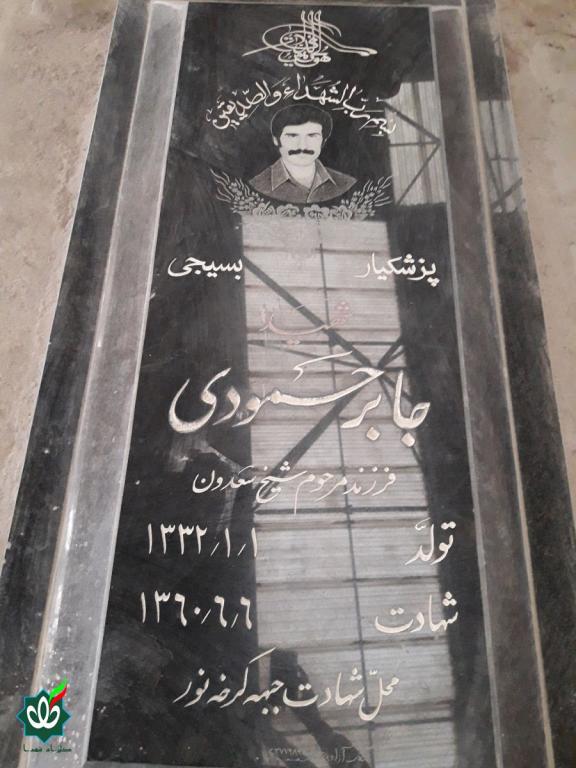 بسم رب الشهداء والصدیقین
پزشکیار بسیجی
شهید
جابر حمودی
فرزند مرحوم شیخ سعدون
تولد ۱۳۳۲/۱/۱
شهادت ۱۳۶۰/۶/۶
محل شهادت جبهه کرخه نور